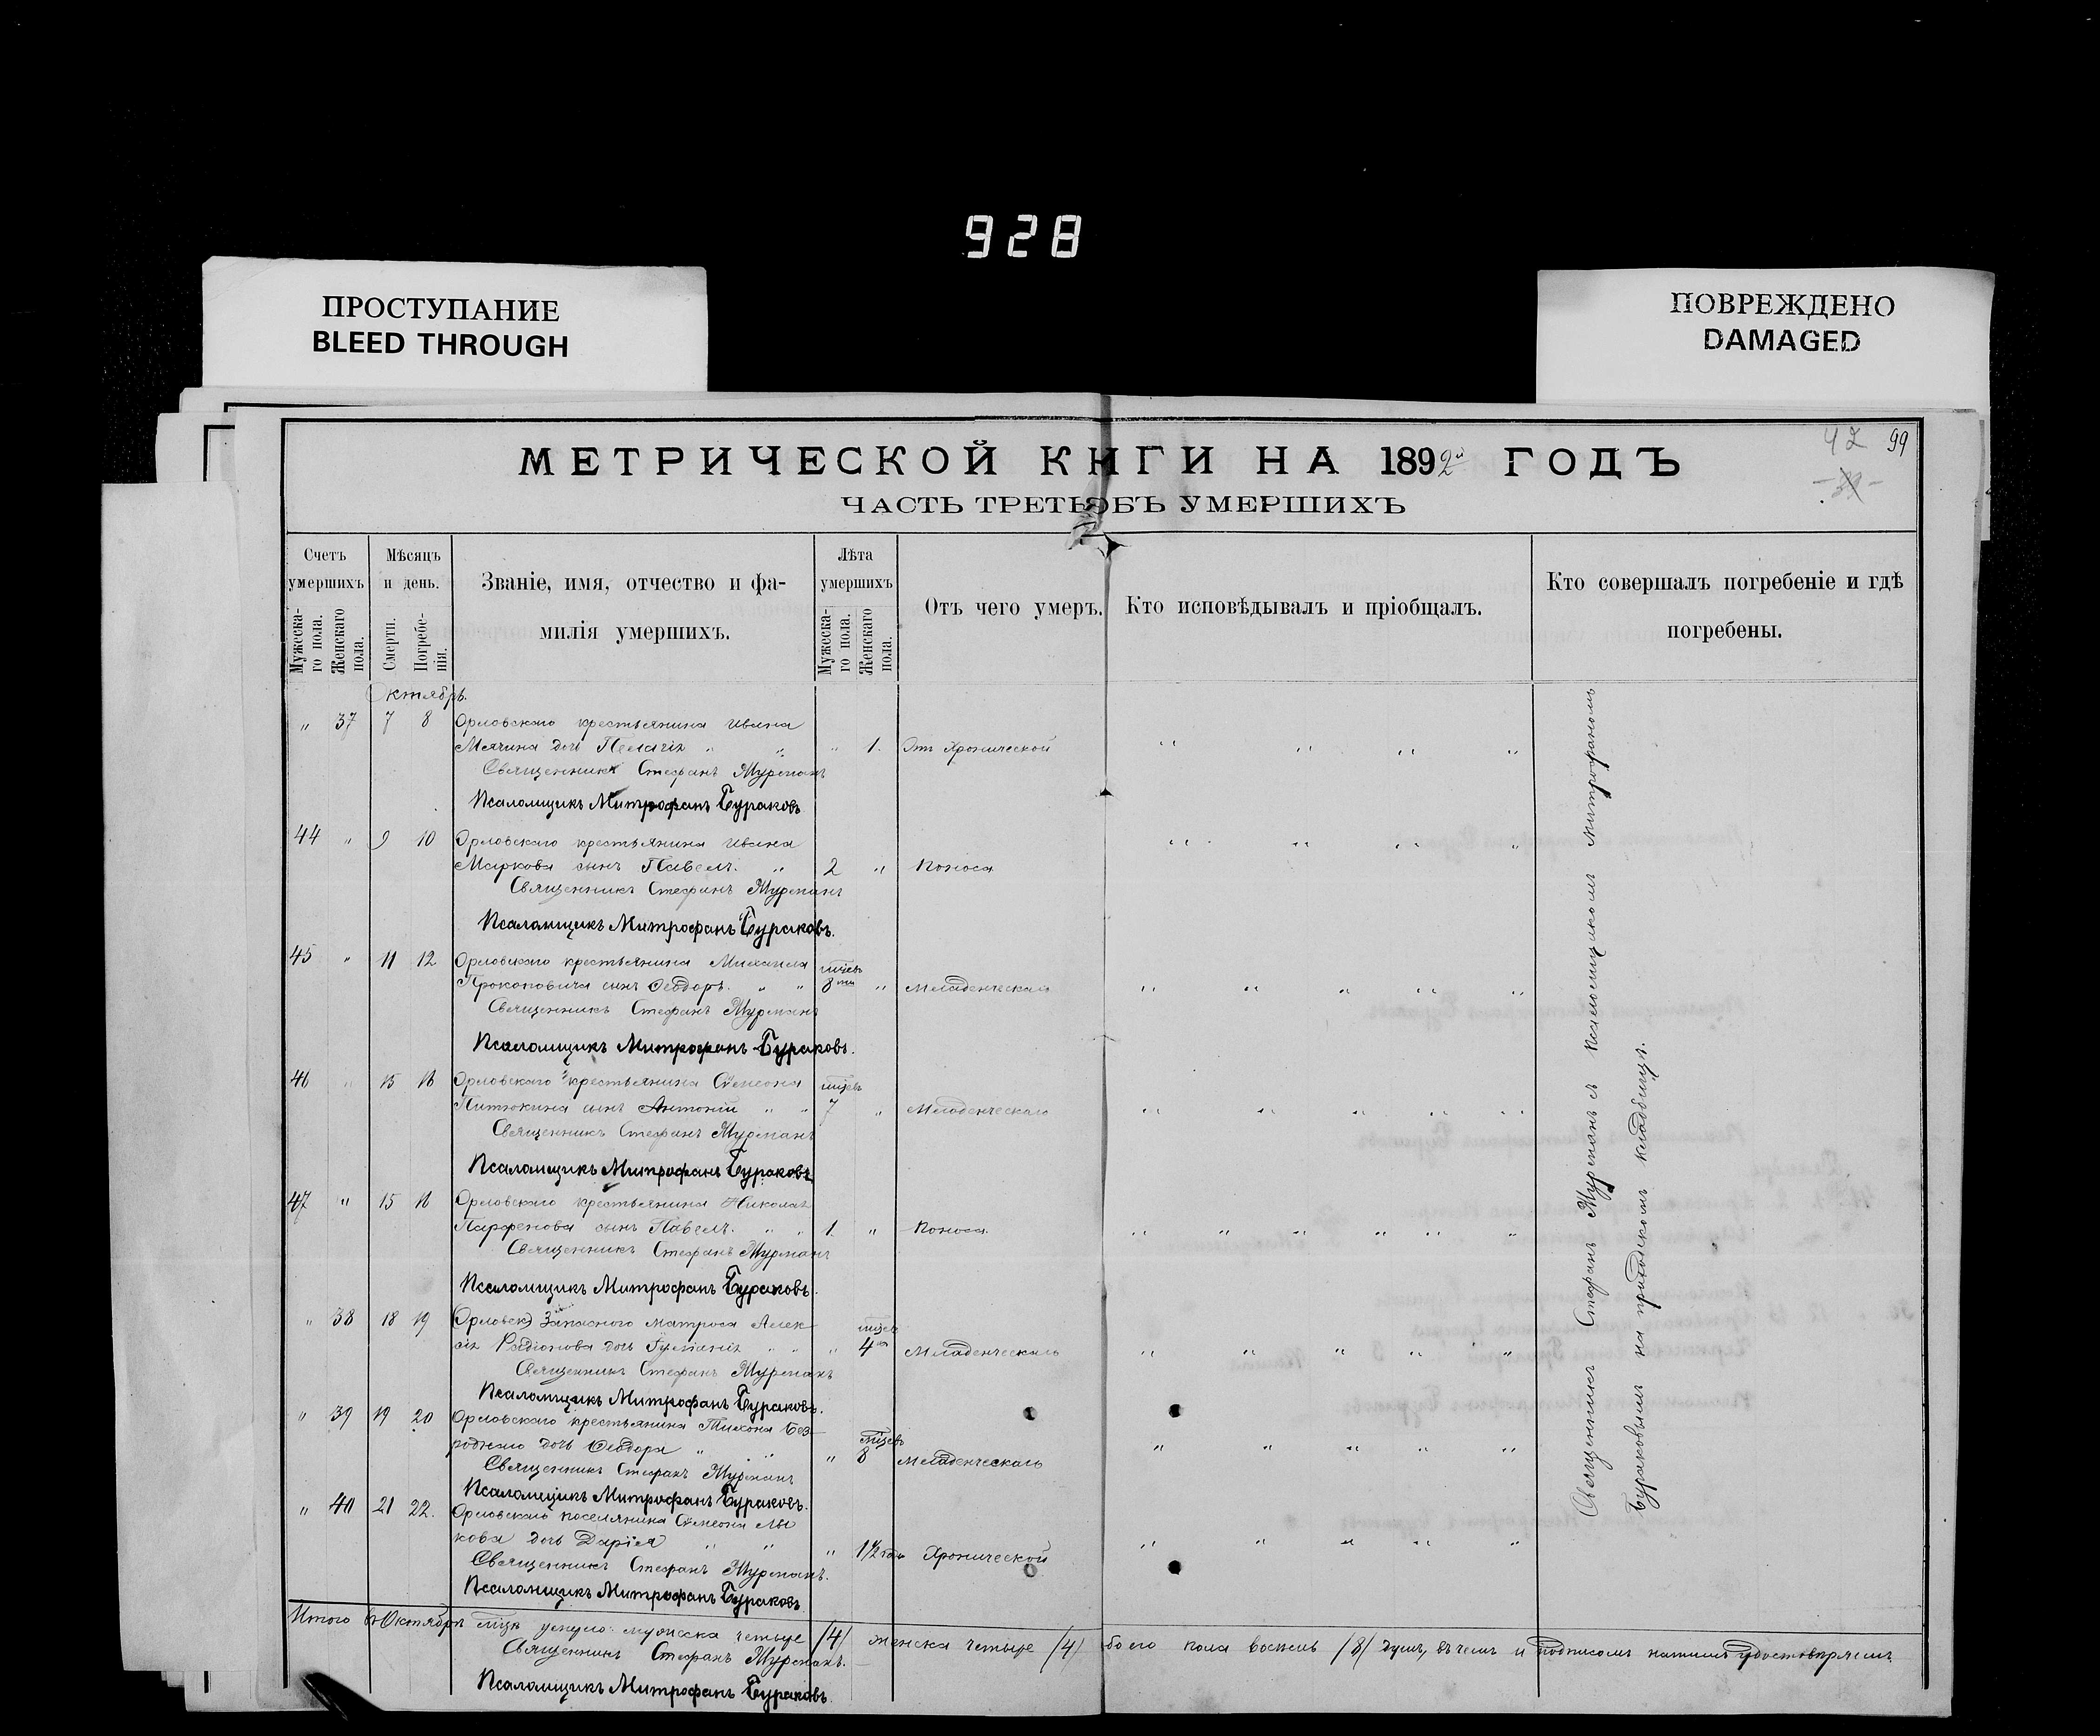 928
ПРОСТУПАНИЕ
BLEED THROUGH
ПОВРЕЖДЕНО
DAMAGED
42 99
МЕТРИЧЕСКОЙ КНИГИ НА 1892й ГОДЪ
ЧАСТЬ ТРЕТЬ ОБЪ УМЕРШИХЪ
Счетъ умершихъ
Мужеска-го пола.
Женскаго пола.
Мѣсяцъ и день.
Смерти.
Погребе-нія.
Званіе, имя, отчество и фа-
милія умершихъ.
Лѣта умершихъ
Мужеска-го пола.
Женскаго пола.
Отъ чего умеръ.
Кто исповѣдывалъ и пріобщалъ.
Кто совершалъ погребеніе и гдѣ
погребены.
Октябрь.
„ 37 7 8 Орловскаго крестьянина Ивана
Мячина дочь Пелагія „ „ „ 1. Отъ Хронической „ „ „ „
Священникъ Стефанъ Мурманъ
Псаломщикъ Митрофанъ Бураковъ
44 „ 9 10 Орловскаго крестьянина Ивана
Маркова сынъ Павелъ. „ 2 „ Поноса „ „ „ „
Священникъ Стефанъ Мурманъ
Псаломщикъ Митрофанъ Бураковъ.
45 „ 11 12 Орловскаго крестьянина Михаила мѣсяцъ
Прокоповича сынъ Ѳеодоръ. „ „ 8ми „ Младенческаго „ „ „ „ „
Священникъ Стефанъ Мурманъ
Псаломщикъ Митрофанъ Бураковъ.
46 „ 15 16 Орловскаго крестьянина Сѵмеона
Питюкина сынъ Антоній „ „ 7 „ Младенческаго „ „ „ „ „
Священникъ Стефанъ Мурманъ
Псаломщикъ Митрофанъ Бураковъ
47 „ 15 16 Орловскаго крестьянина Николая
Парфенова сынъ Павелъ. „ „ 1. „ Поноса. „ „ „ „ „ „
Священникъ Стефанъ Мурманъ
Псаломщикъ Митрофанъ Бураковъ.
„ 38 18 19 Орловск. Запаснаго матроса Алек-
сія Радіонова дочь „ „ „ 4 Младенческаго „ „ „ „ „
Священникъ Стефанъ Мурманъ
Псаломщикъ Митрофанъ Бураковъ.
„ 39 19 20 Орловскаго крестьянина Тихона Без-
роднаго дочь Ѳеодора „ „ „ 8 Младенческаго „ „ „ „ „
Священникъ Стефанъ Мурманъ
Псаломщикъ Митрофанъ Бураковъ.
„ 40 21 22. Орловскаго поселянина Сѵмеона Лы
кова дочь Дарія „ „ „ 1 1/2 года Хронической „ „ „ „ „
Священникъ Стефанъ Мурманъ.
Псаломщикъ Митрофанъ Бураковъ
Священникъ Стефанъ Мурманъ съ псаломщикомъ Митрофаномъ
Бураковымъ на приходскомъ кладбищѣ.
Итого въ Октябрѣ мѣсяцѣ умерло: мужеска четыре /4/ женска четыре /4/ обоего пола восемь /8/ душъ, въ чемъ и подписомъ нашимъ удостовѣряемъ
Священникъ Стефанъ Мурманъ.
Псаломщикъ Митрофанъ Бураковъ.